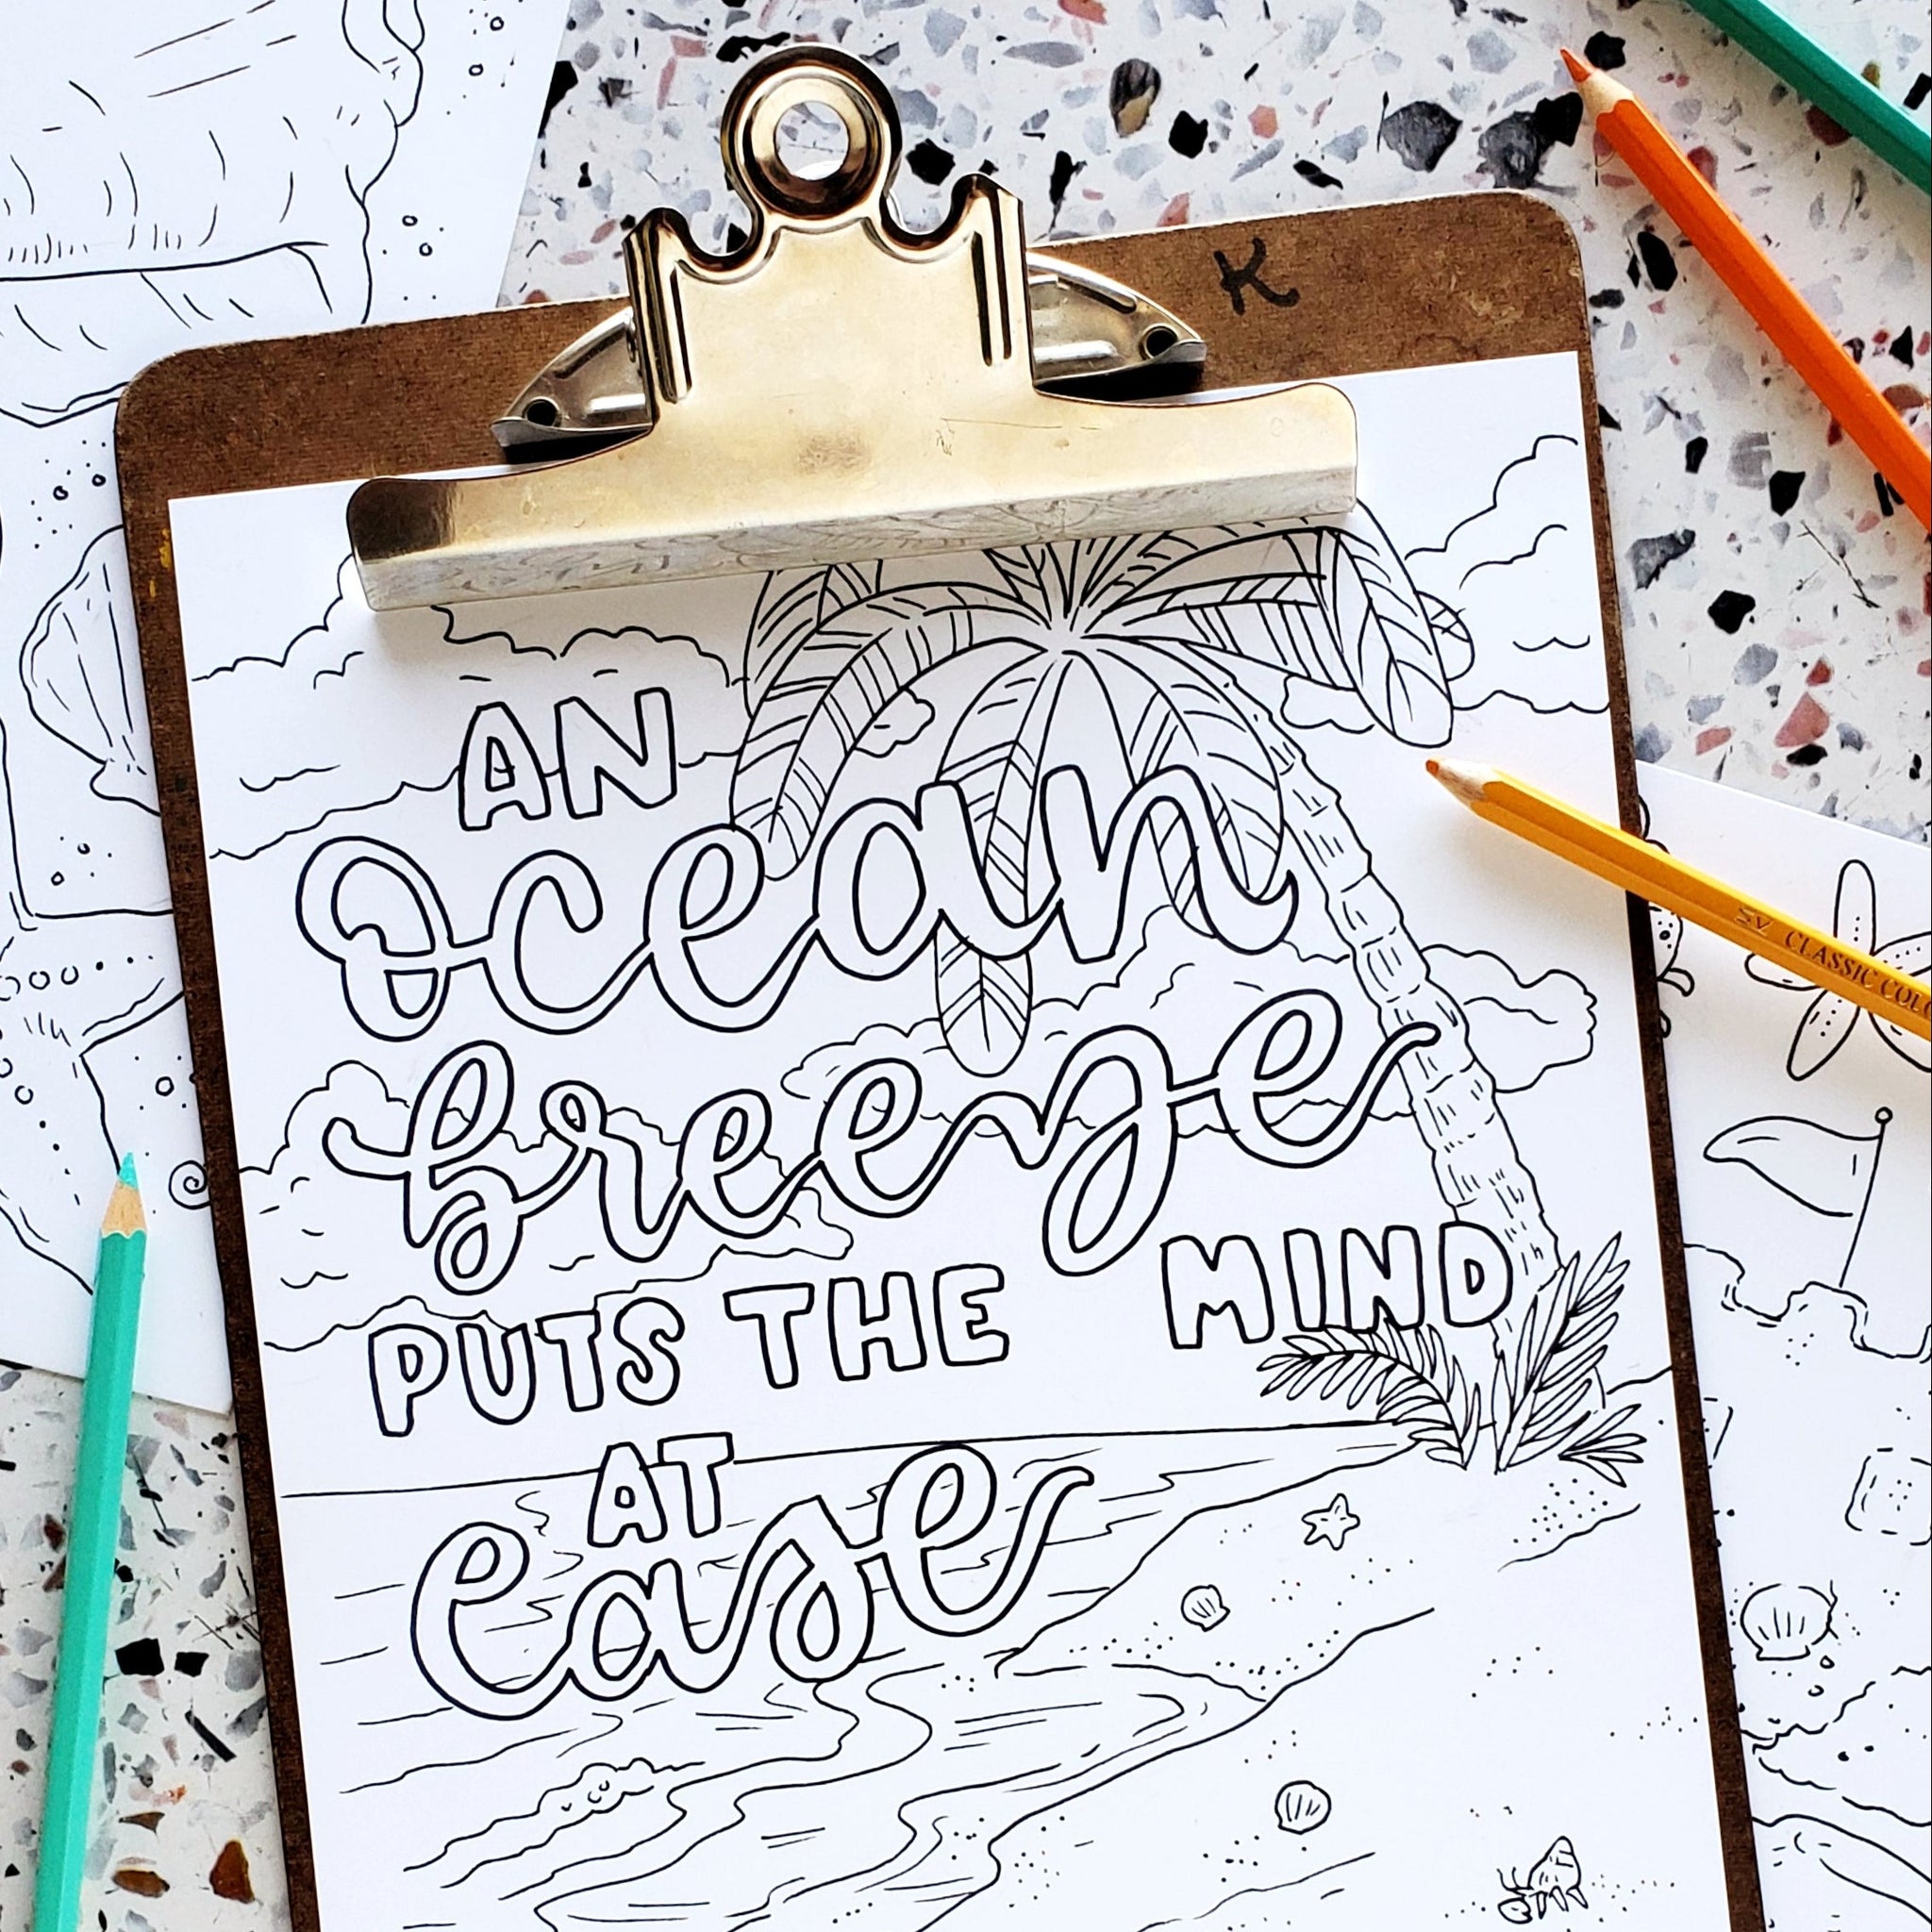 K
AN
Ocean
breeze
PUTS THE MIND
AT
ease
CLASSIC COLO